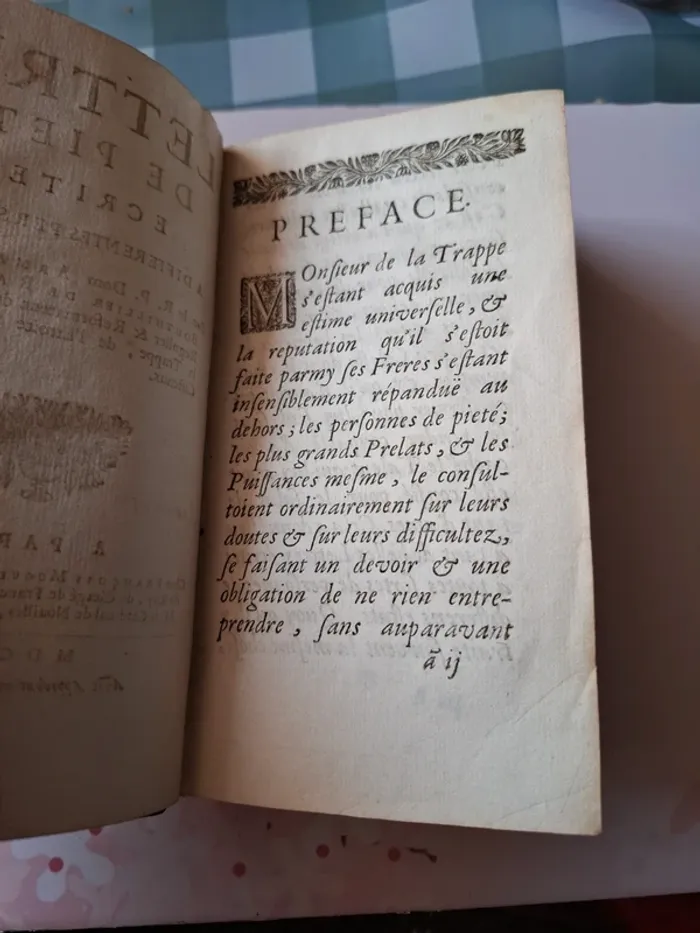 LETTR
DE PIET
ECRITE
A DIFFERENTES PERS
R. P. Dom
Trappe,
A PAR
PREFACE.
MOnſieur de la Trappe
s'eſtant acquis une
eſtime univerſelle, &
la reputation qu'il s'eſtoit
faite parmy ſes Freres s'eſtant
inſenſiblement répanduë au
dehors; les perſonnes de pieté;
les plus grands Prelats, & les
Puiſſances meſme, le conſul-
toient ordinairement ſur leurs
doutes & ſur leurs difficultez,
ſe faiſant un devoir & une
obligation de ne rien entre-
prendre, ſans auparavant
ã ij